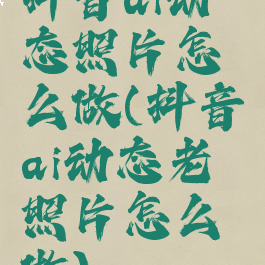 抖音ai动
态照片怎
么做(抖音
ai动态老
照片怎么
做)